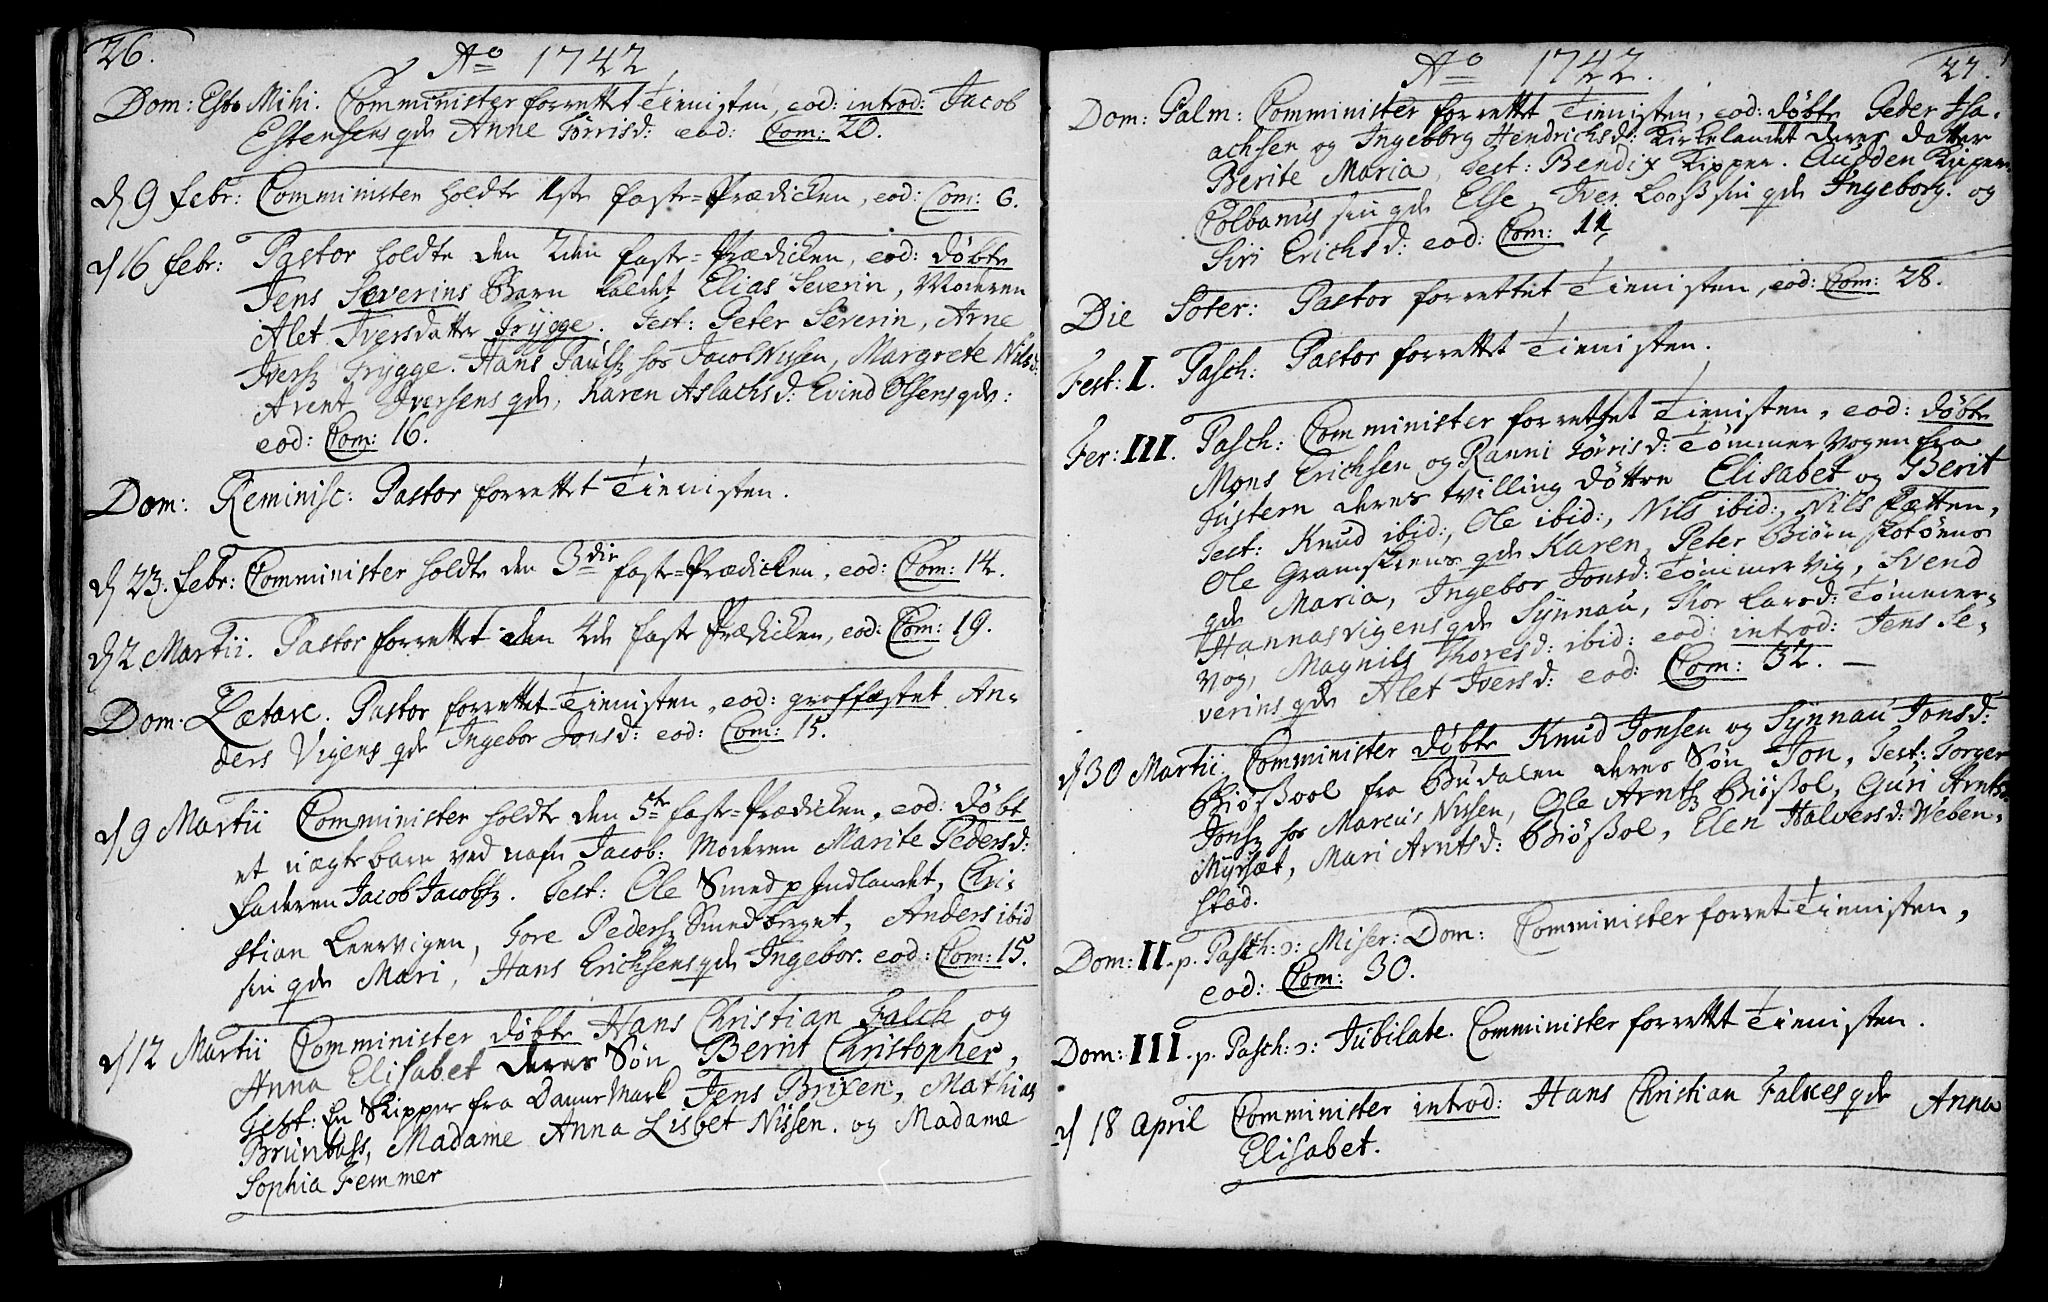 26.
Ao 1742
Dom: Esto Mihi. Comminister forrettet Tienisten, eod: introd: Jacob
Estensens qde Anne Torrisd: eod: Com: 20.
d 9 febr: Comministen holdte 1ste faste=Prædicken, eod: Com: 6.
d 16 febr: Pastor holdte den 2den faste=Prædicken, eod: døbte
Jens Severins Barn kaldet Elias Severin, Moderen
Alet Iversdatter Trygge. Test: Peter Severin, Arne
Ivers Trygge. Hans Pauls hos Jacob Nissen, Margrete Nilsd:
Arent Iversens qde, Karen Aslachsd: Evind Olsens qde:
eod: Com: 16.
Dom: Reminisc: Pastor forrettet Tienisten.
d 23. febr: Comminister holdte den 3die faste=Prædicken, eod: Com: 14.
d 2 Martii. Pastor forrettet den 4de faste Prædicken, eod: Com: 19.
Dom: Lætare. Pastor forrettet Tienisten, eod: graffæstet An=
ders Vigens qde Ingebor Jonsd: eod: Com: 15.
d 9 Martii Comminister holdte den 5te faste=Prædicken, eod: døbt
et uægte barn ved nafn Jacob: Moderen Marite Pedersd:
faderen Jacob Jacobs. Test: Ole Smed p Indlandet, Chri=
stian Leervigen, Tore Peders Smedberget, Anders ibid
sin qde Mari, Hans Erichsens qde Ingebor. eod: Com: 15.
d 12 Martii Comminister døbte Hans Christian Falch og
Anna Elisabet deres Søn Bernt Christopher,
Test: En Skipper fra Dannemark Jens Brixen, Mathias
Brünbass, Madame Anna Lisbet Nissen. og Madame
Sophia Femmer
Ao 1742.
27.
Dom: Palm: Comminister forrettet Tienisten, eod: døbte Peder Isa=
achsen og Ingeborg Hendrichsd: Kirkelandet deres datter
Berite Maria, Test: Bendix Kipper. Audden Kipper
Colbanus sin qde Else, Iver Looss sin qde Ingeborg. og
Siri Erichsd: eod: Com: 11
Die Soter: Pastor forrettet Tienisten, eod: Com: 28.
Fest: I. Pasch: Pastor forrettet Tienisten.
Fer: III. Pasch: Comminister forrettet Tienisten, eod: døbte
Mons Erichsen og Ranni Torrisd: Tømmervogen fra
Tustern deres tvilling døttre Elisabet og Berit
Test: Knud ibid:, Ole ibid:, Nils ibid:, Nils Fætten,
Ole Gramskiens qde Karen, Peter Biørn Skotøens
qde Maria, Ingebor Jonsd: Tømmervig, Svend
Hannasvigens qde Synnau, Thor Larsd: Tømmer=
vog, Magnils Thoresd: ibid: eod: introd: Jens Se=
verins qde Alet Iversd: eod: Com: 32. —
d 30 Martii. Comminister døbte Knud Jonsen og Synnau Jonsd:
Biøssool fra Budalen deres Søn Jon, Test: Torger
Jons hos Marcus Nissen, Ole Arnts Biøssol, Guri Arnts
Myrsæt, Mari Arntsd: Biøssol, Elen Halversd: Weben=
stad.
Dom: II. p. Pasch: ɔ: Miser: Dom: Comminister forret Tienisten,
eod: Com: 30.
Dom: III. p. Pasch: ɔ: Jubilate. Comminister forrettet Tienisten.
d 18 April Comminister introd: Hans Christian Falkes qde Anna
Elisabet.